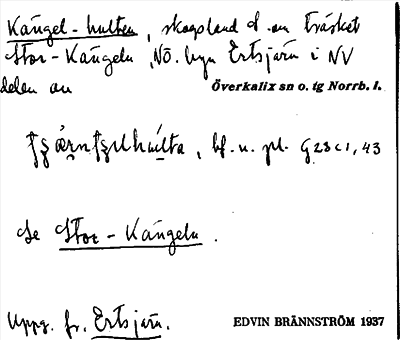 Kängel-hulten, skogsland S. om träsket
Stor-Kängeln, NÖ. byn Ertsjärn i NV
delen av Överkalix sn o. tg Norrb. l.
bf. n. pl. G 23 c 1, 43
Se Stor-Kängeln.
Uppg. fr. Ertsjärn. EDVIN BRÄNNSTRÖM 1937